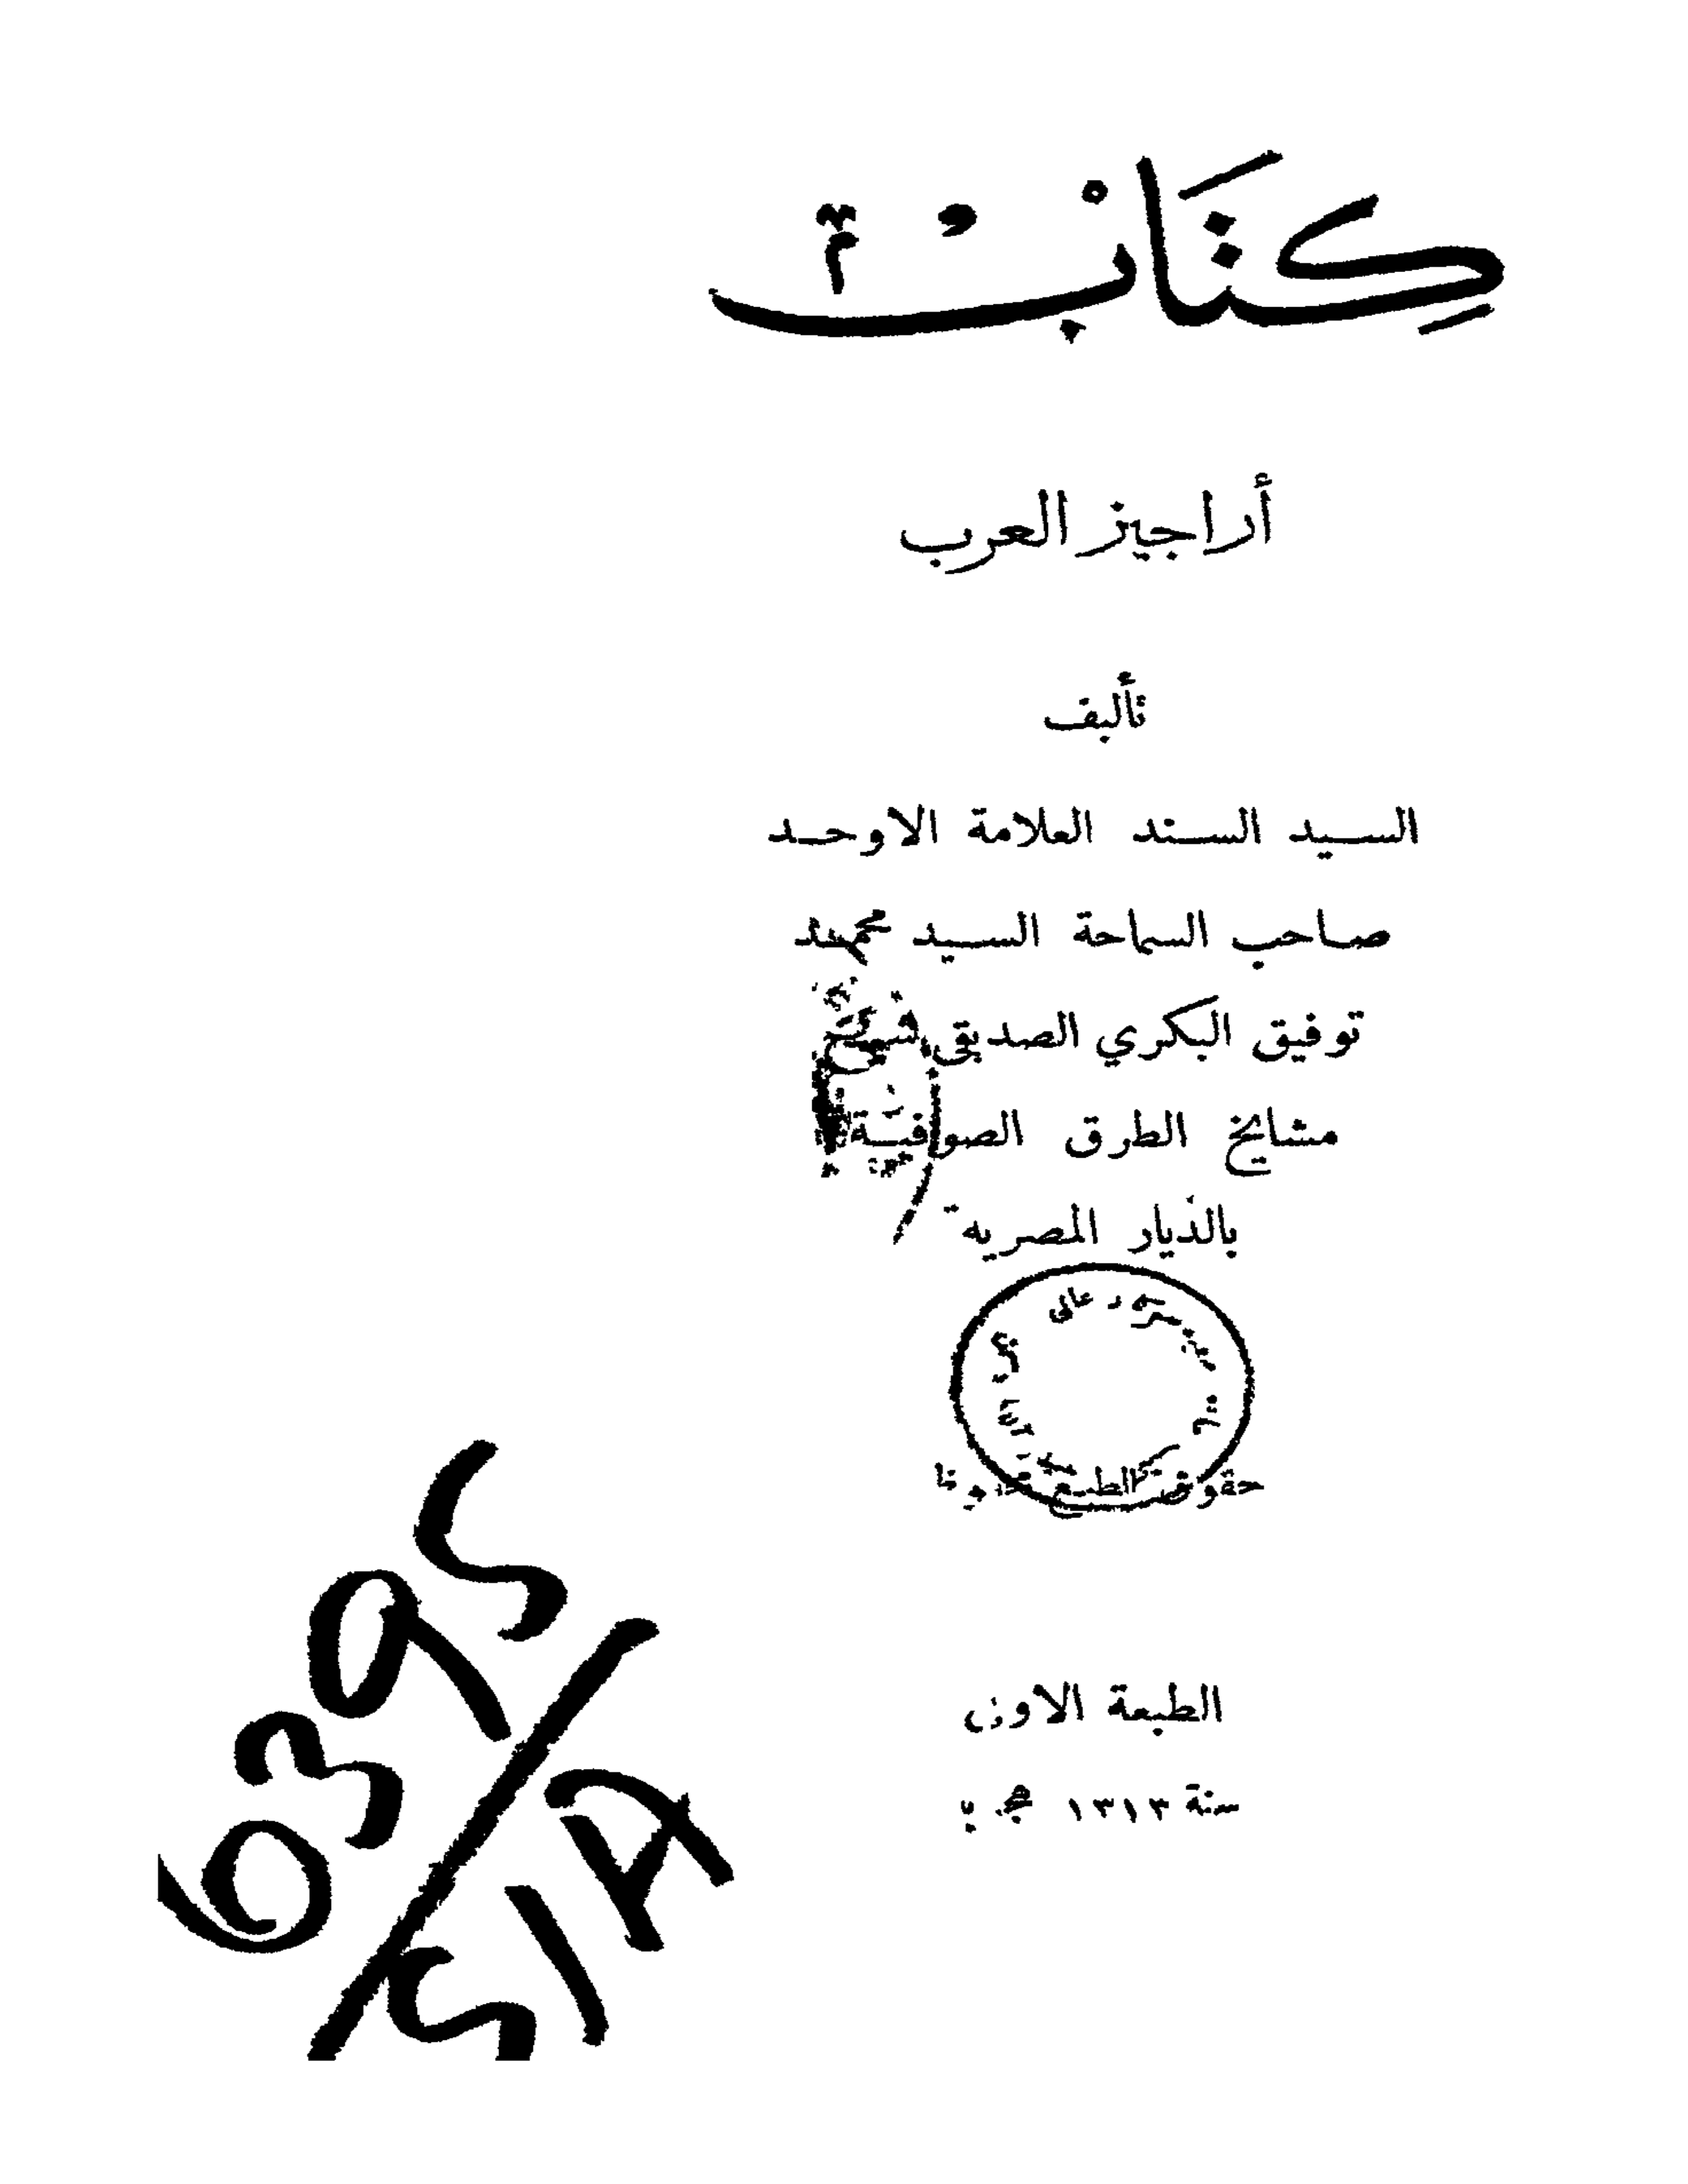 كتاب
أراجيز العرب
تأليف
السيد السند العلامة الاوحد
صاحب السماحة السيد محمد
توفيق البكري الصديقي شيخ
مشايخ الطرق الصوفية
بالديار المصرية
حقوق الطبع
الطبعة الاولى
سنة ١٣١٣